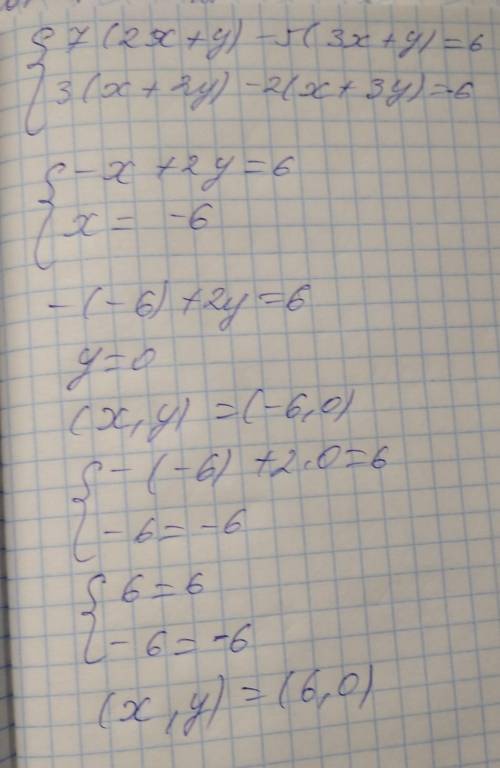 7(2x+y)-5(3x+y)=6
3(x+2y)-2(x+3y)=-6
-x+2y=6
x=-6
-(-6)+2y=6
y=0
(x,y)=(-6,0)
-(-6)+2·0=6
-6=-6
6=6
-6=-6
(x,y)=(6,0)